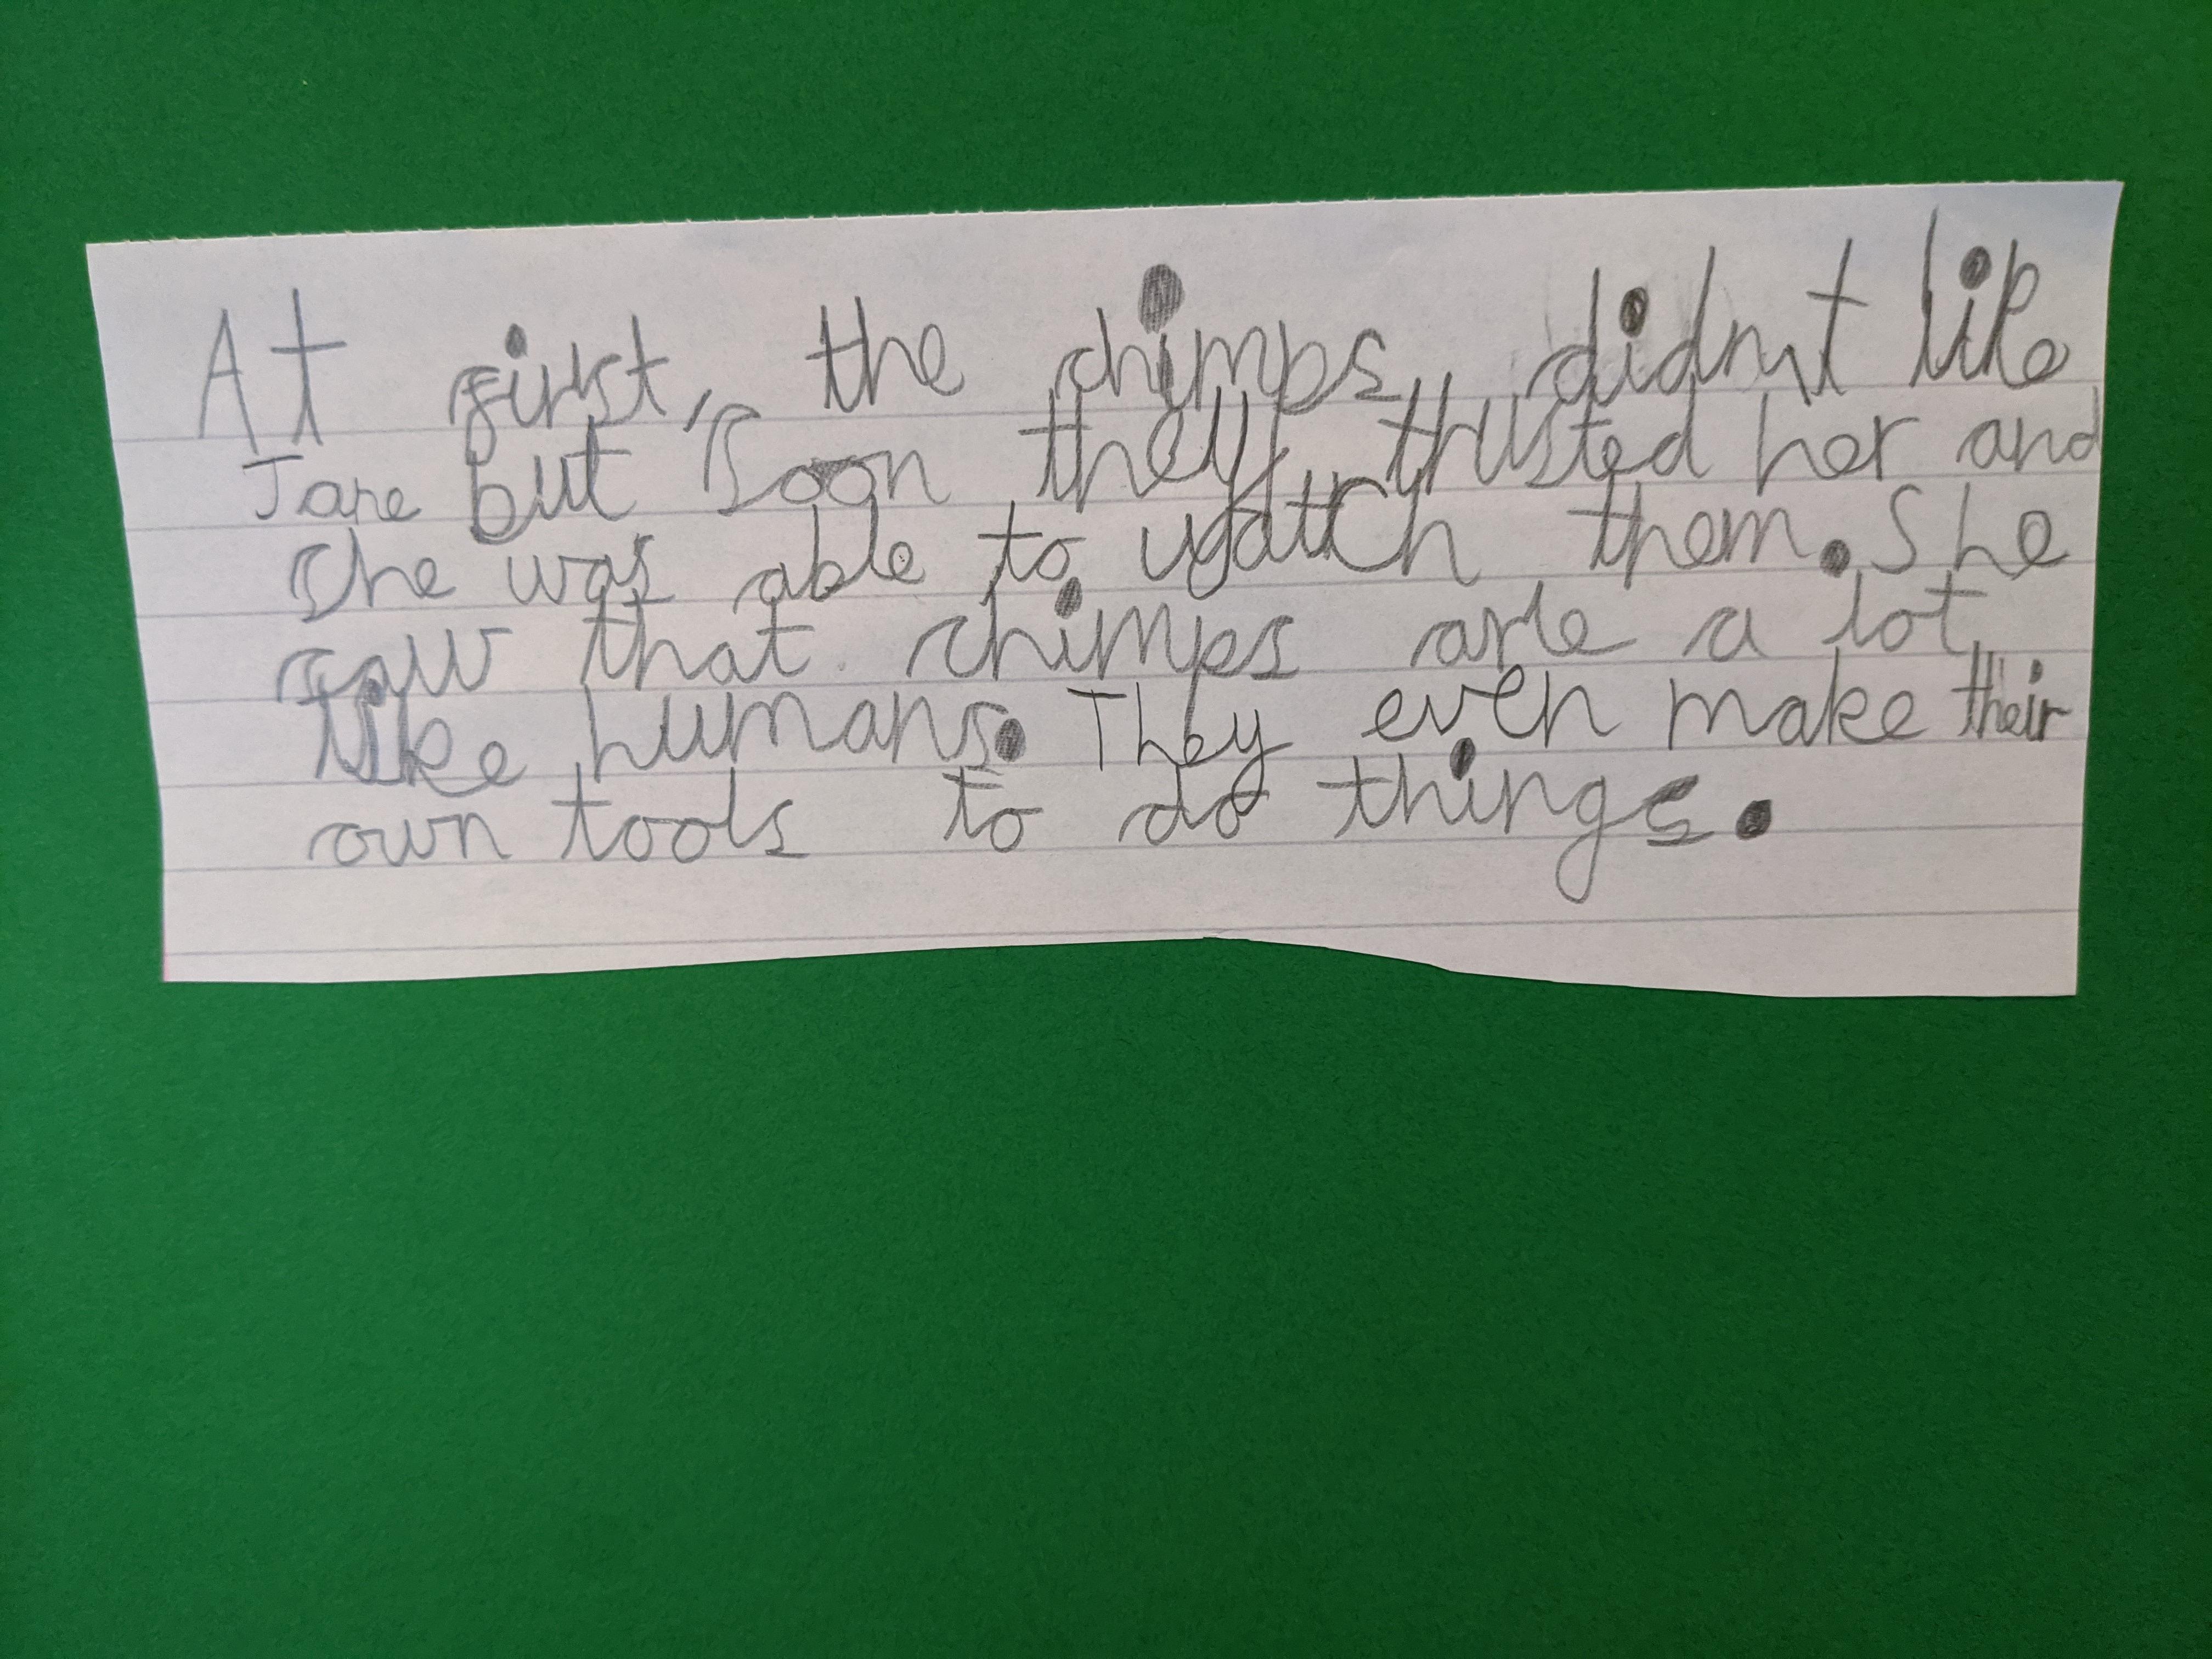 At first, the chimps didnt like
Jane but soon they trusted her and
she was able to watch them. She
saw that chimps are a lot
like humans. They even make their
own tools to do things.